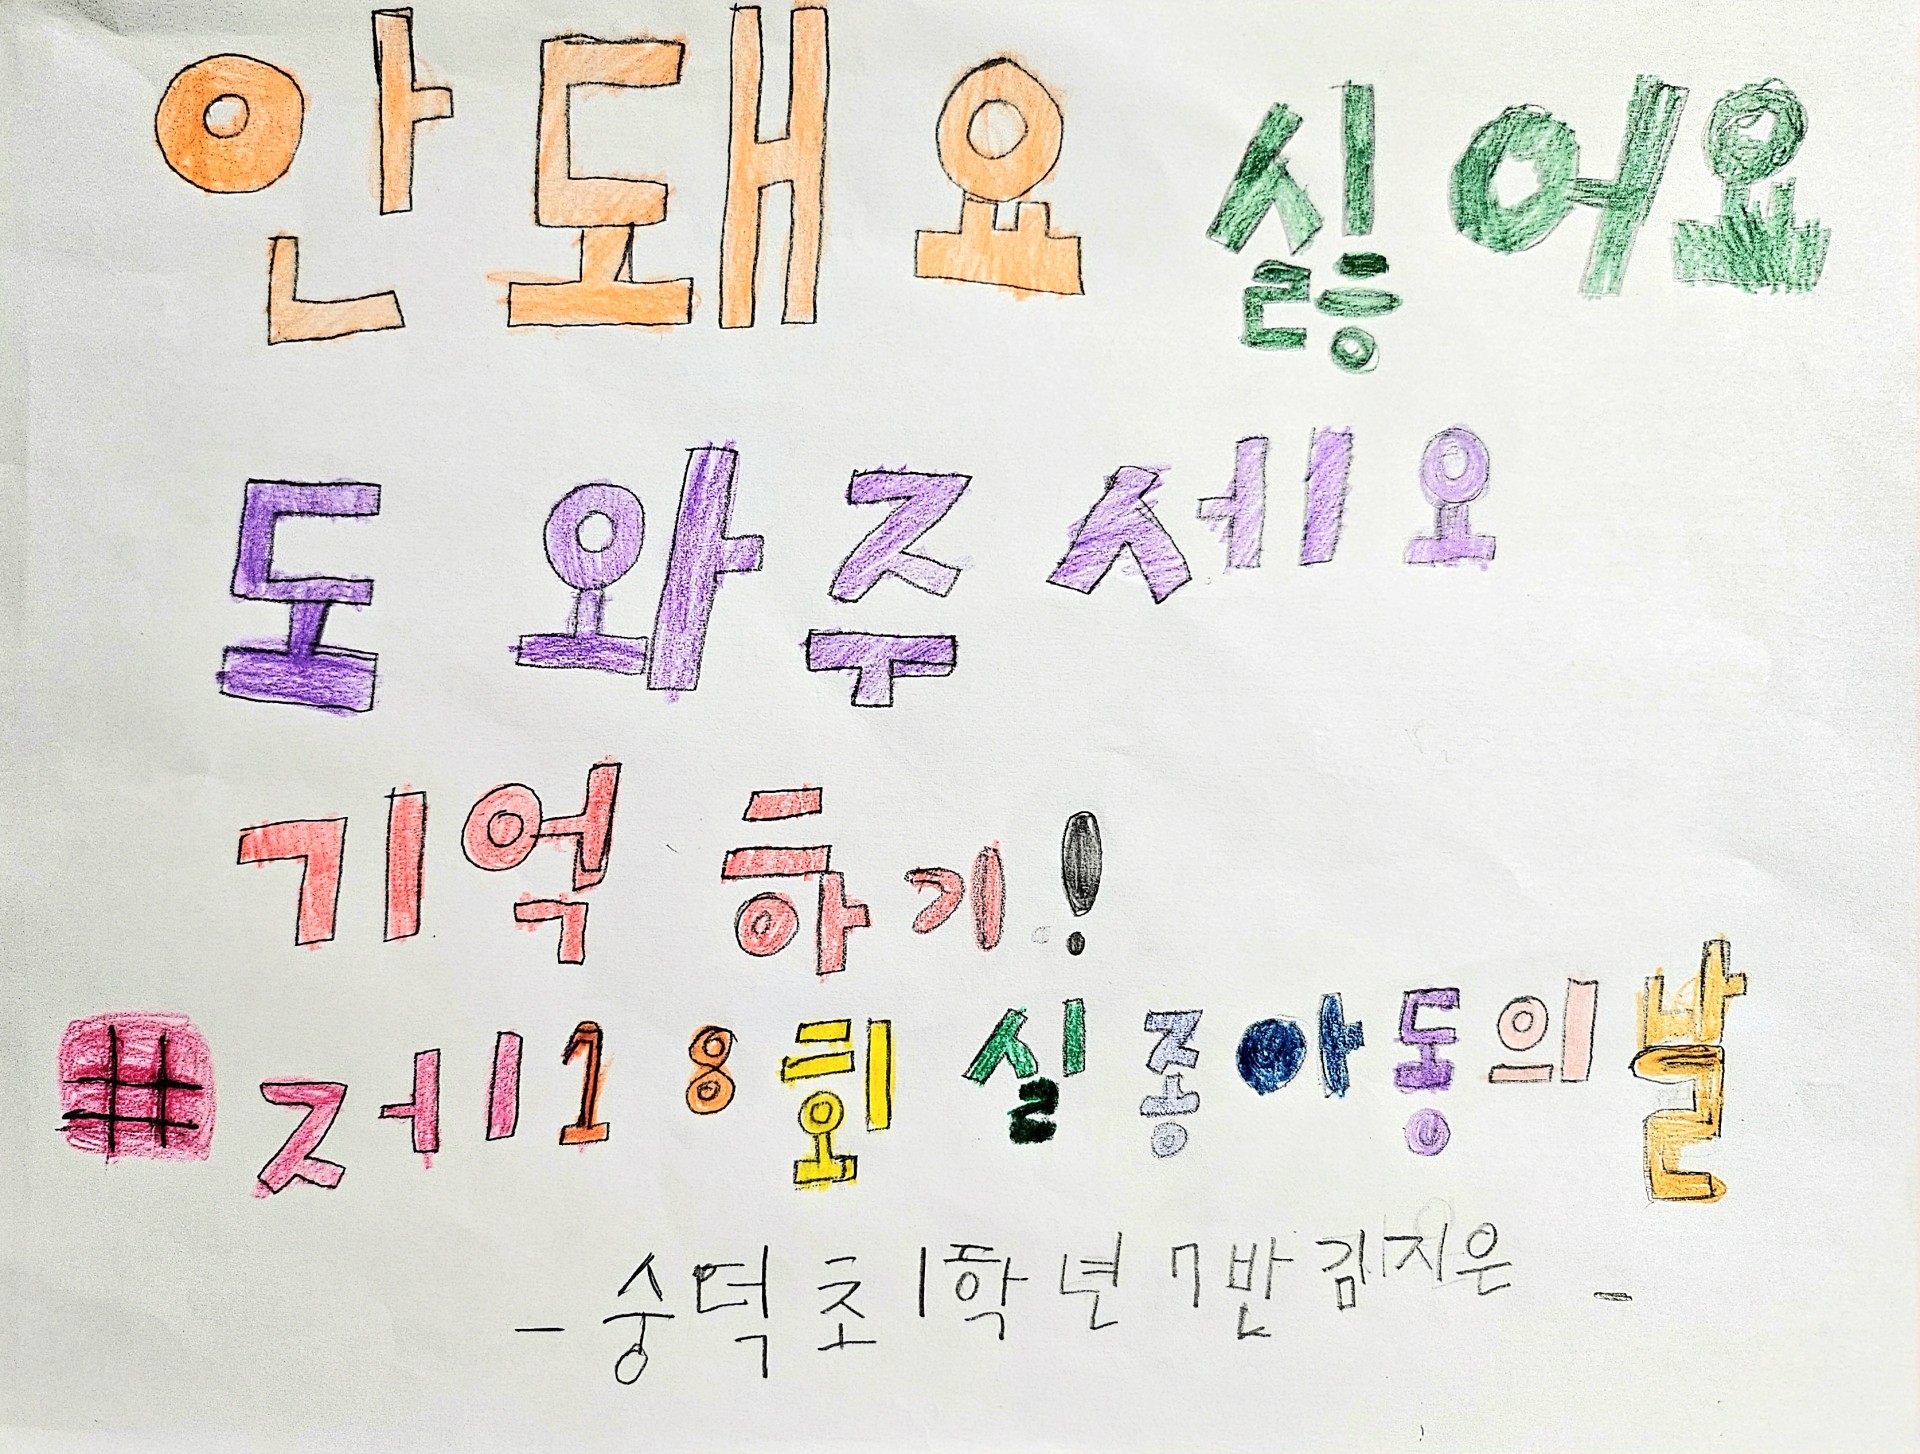 안돼요 싫어요
도와주세요
기억하기!
#제18회 실종아동의날
- 숭덕초 1학년 7반 김지은 -